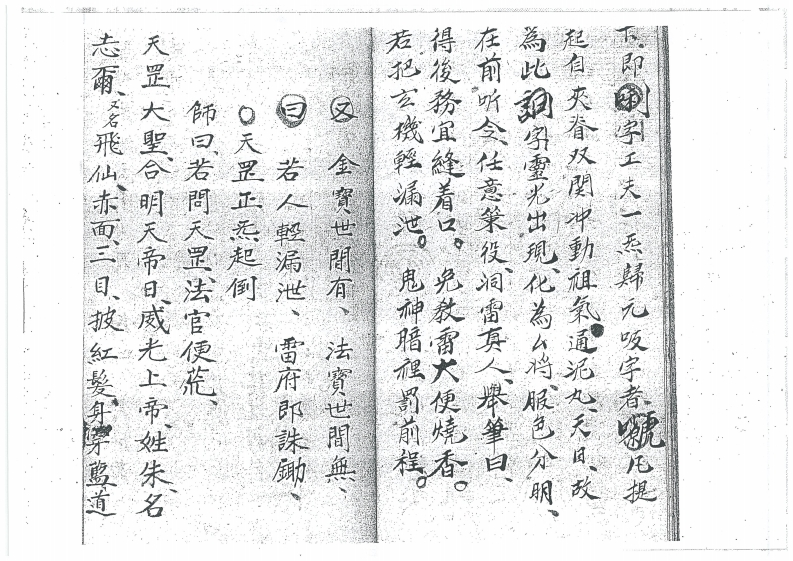 下、即唎字工夫一炁歸元吸字者、唬凡提
起自夾脊双関冲動祖氣通泥丸、天目、故
為此詷字靈光出現、化為厶将、服色分明、
在前听令、任意策役、洞雷真人、舉筆曰、
得後務宜縫着口。免教雷火便燒香。
若把玄機輕漏泄。鬼神暗裡罰前程。
又 金寶世間有、法寶世間無、
曰 若人輕漏泄、雷府即誅鋤、
天罡正炁起倒
師曰、若問天罡、法官便荒、
天罡大聖、合明天帝日、威光上帝、姓朱名
志爾、又名飛仙、赤面、三目、披紅髮、身穿藍道